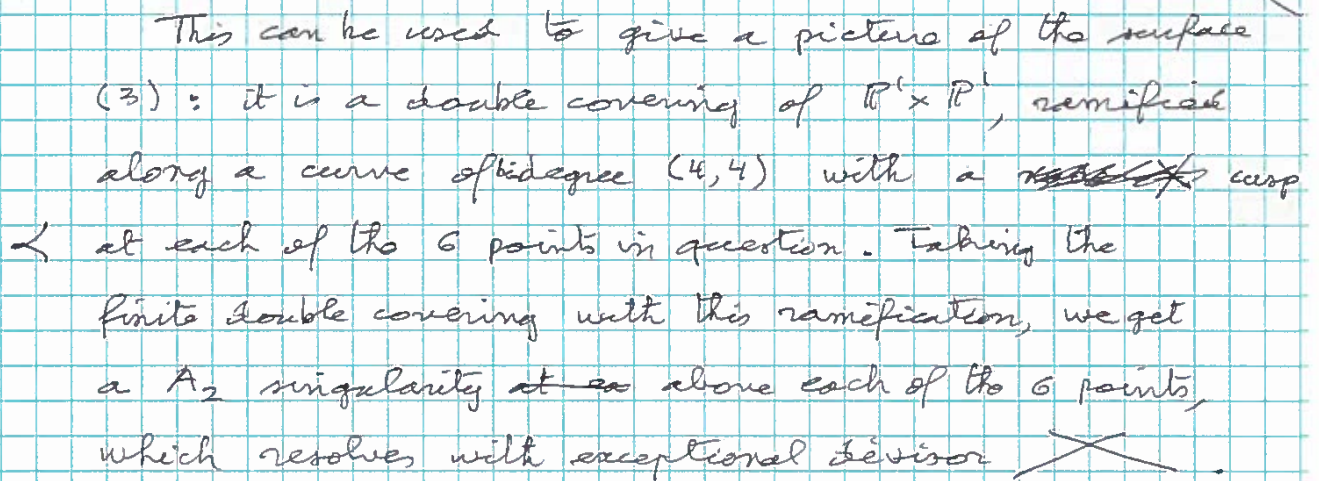 This can be used to give a picture of the surface
(3) : it is a double covering of P¹ x P¹, ramified
along a curve of bidegree (4,4) with a cusp
at each of the 6 points in question. Taking the
finite double covering with this ramification, we get
a A₂ singularity above each of the 6 points,
which resolves with exceptional divisor .